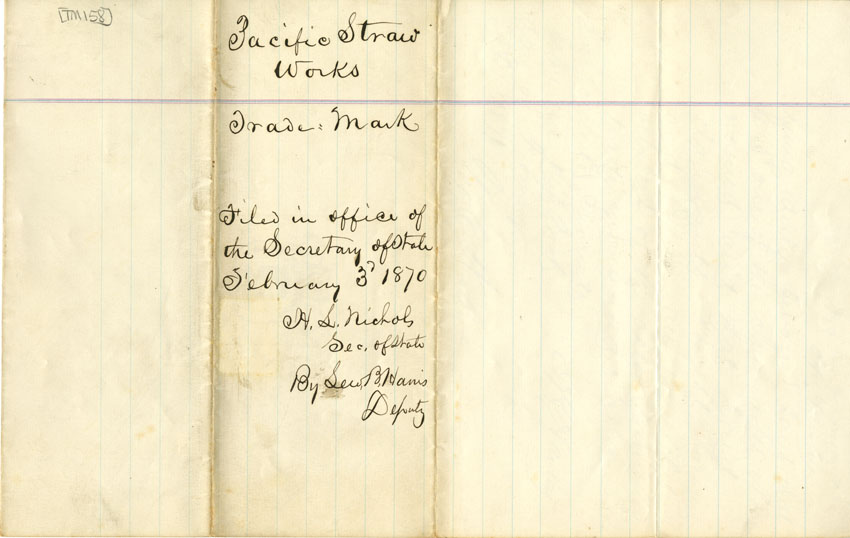 [TM158]
Pacific Straw
Works
Trade-Mark
Filed in office of
the Secretary of State
February 3d 1870
H. L. Nichols
Sec. of State
By Lew. B. Harris
Deputy